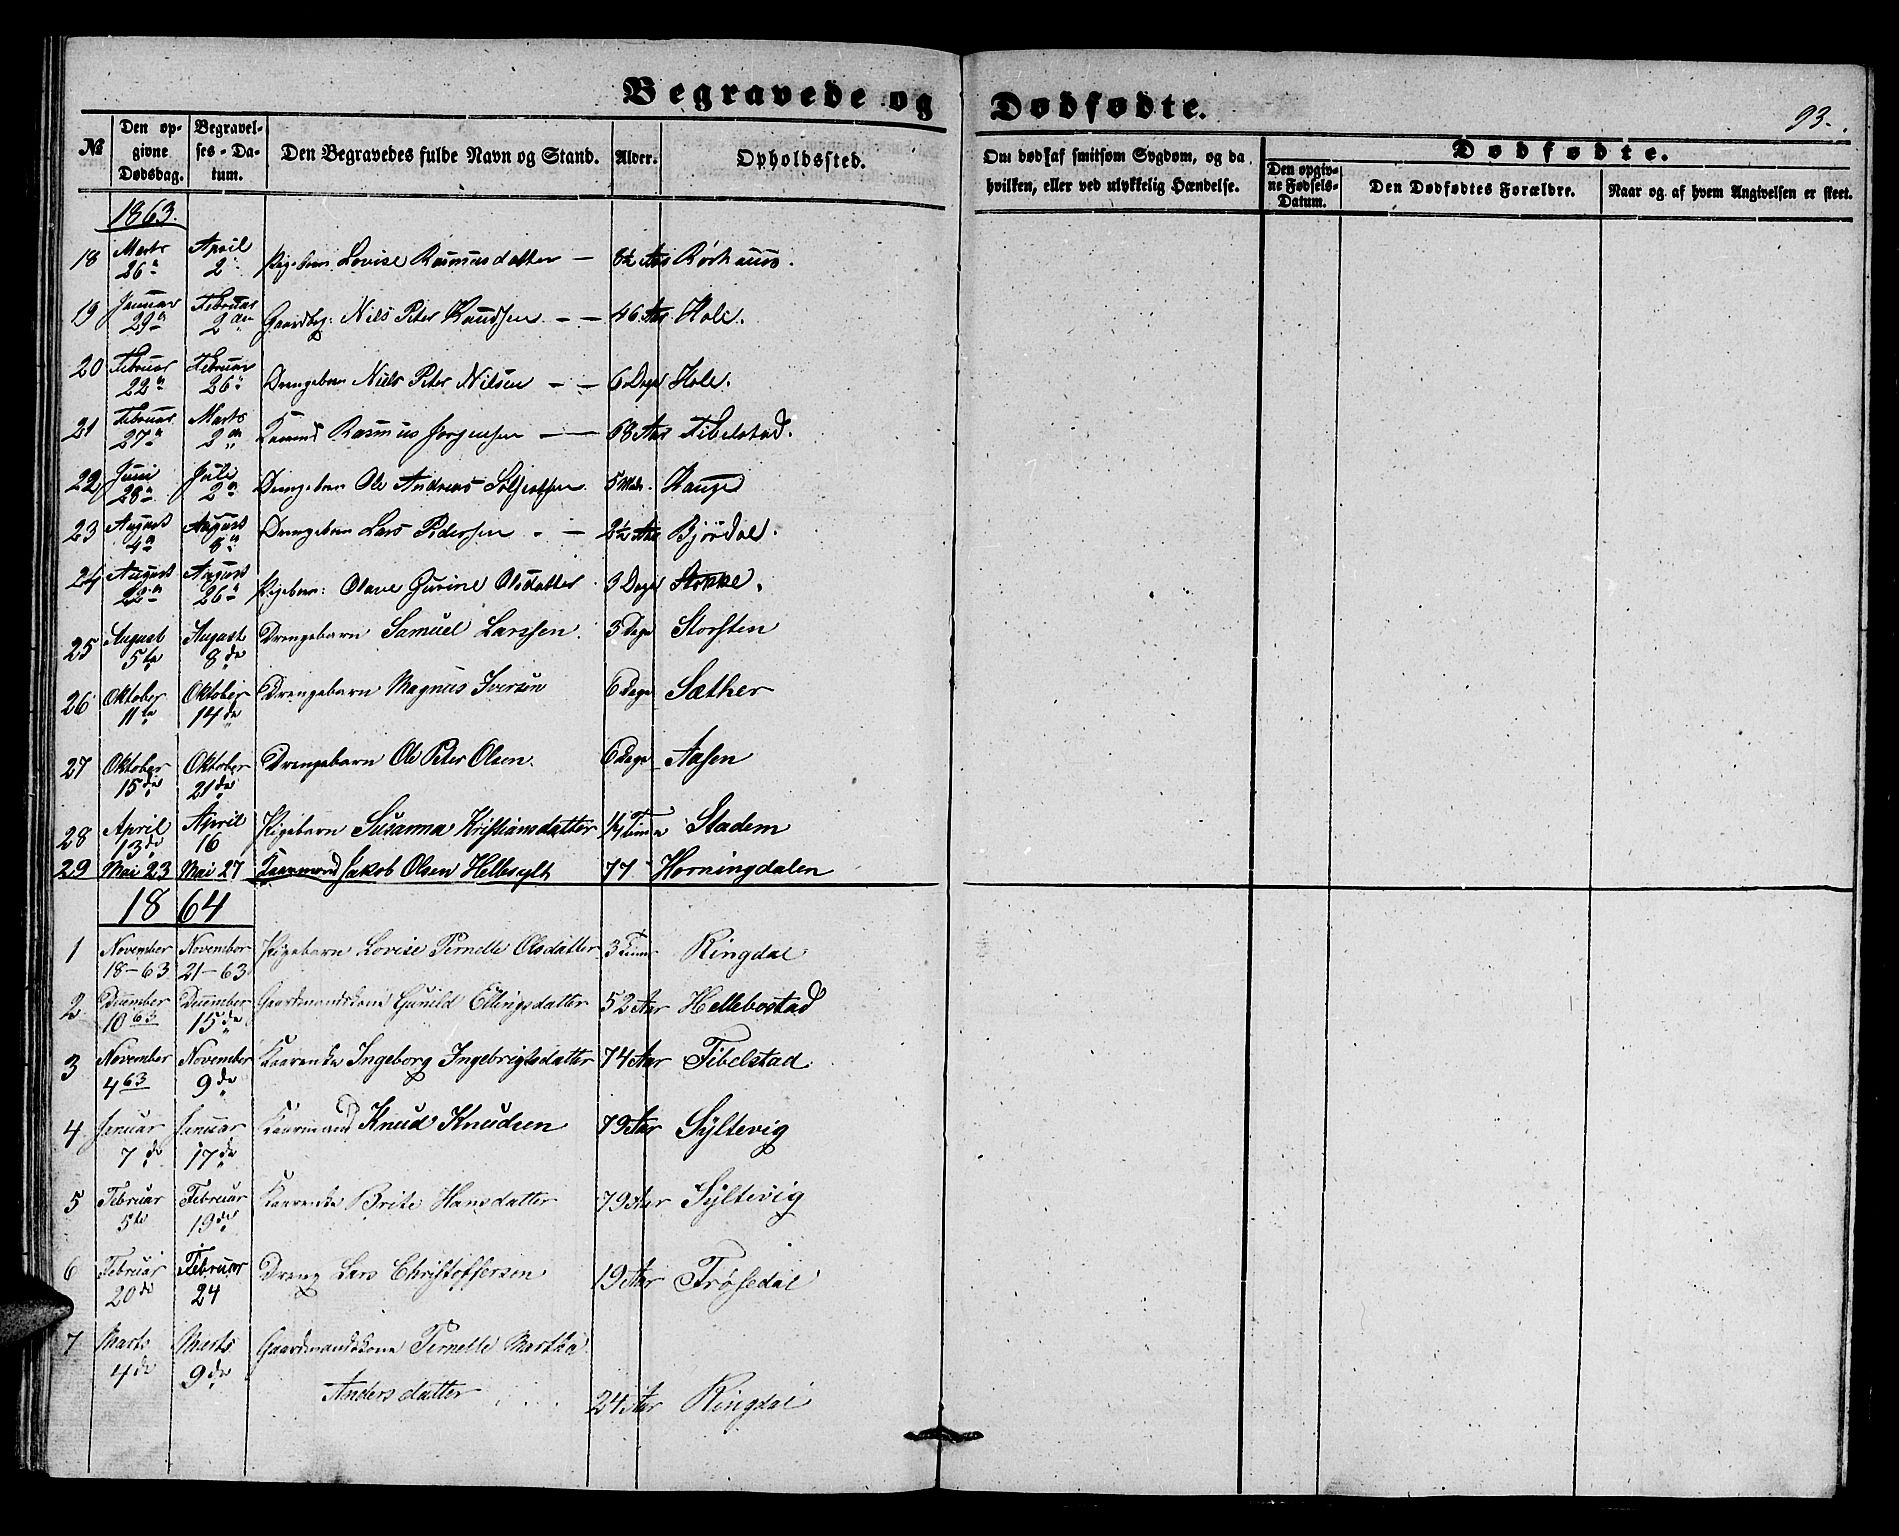 Begravede og Dødfødte.
93.
№
Den opgivne Dødsdag.
Begravelses-Datum.
Den Begravedes fulde Navn og Stand.
Alder.
Opholdssted.
Om død af smitsom Sygdom, og da hvilken, eller ved ulykkelig Hændelse.
Dødfødte.
Den opgivne Fødsels-Datum.
Den Dødfødtes Forældre.
Naar og af hvem Angivelsen er skeet.
1863.
18 Marts 26 April 2 Pigebarn Lovise Rasmusdatter Aar
19 Januar 29 Februar 2den Gaardbr: Nils Peter Knudsen 46 Aar Hole.
20 Februar 22 Februar 26 Drengebarn Niels Peter Nilsen 6 Dage Hole.
21 Februar 27 Marts 2 Kaarmd Rasmus Jørgensen 68 Aar Fibelstad.
22 Juni 28 Juli 2 Drengebarn Ole Andreas 5 Mdr. Hauge
23 August 4 August 8 Drengebarn Lars Pedersen 2½ Aar Bjørdal.
24 August 22 August 26 Pigebarn: Olave Gurine Olsdatter 3 Dage Stokke.
25 August 5te August 8de Drengebarn Samuel Larssen. 3 Dage Storsten
26 Oktober 11te Oktober 14de Drengebarn Magnus Iversen 6 Dage Sæther
27 Oktober 15de Oktober 21de Drengebarn Ole Peter Olsen. 6 Dage Aasen
28 April 13de April 16 Pigebarn Susanna Kristiansdatter Stadem
29 Mai 23 Mai 27 Kaarmand Jakob Olsen Hellesylt 77 Horningdalen
1864
1 November 18-63 November 21-63 Pigebarn Lovise Pernelle Olsdatter 3 Timer Ringdal
2 December 10 63 December 15de Gaardmandskone Gunild Ellingsdatter 52 Aar Hellebostad
3 November 4 63 November 9de Kaarenke Ingeborg Ingebrigtsdatter 74 Aar Fibelstad
4 Januar 7de Januar 17de Kaarmand Knud Knudsen 79 Aar Syltevig
5 Februar 5te Februar 19de Kaarenke Brite Hansdatter 79 Aar Syltevig
6 Februar 20de Februar 24 Dreng Lars Christoffersen 19 Aar Frøsedal
7 Marts 4de Marts 9de Gaardmandskone Pernelle Martha
Andersdatter 24 Aar Ringdal